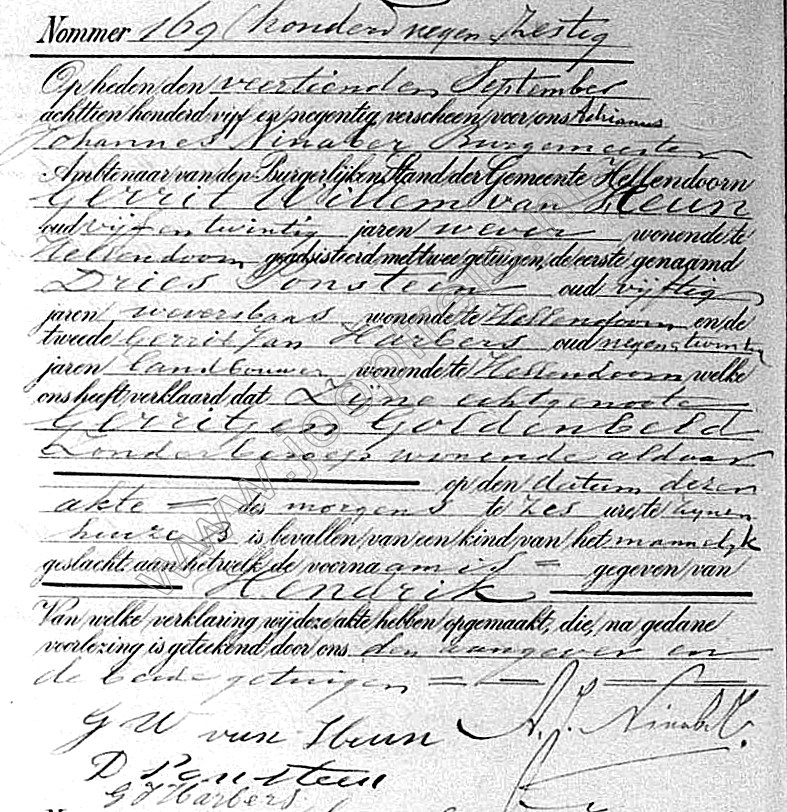 Nommer 169 (honderd negen zestig
Op heden den veertienden September
achttien honderd vijf en negentig, verscheen voor ons Adrianus
Johannes Ninaber Burgemeester
Ambtenaar van den Burgerlijken Stand der Gemeente Hellendoorn
Gerrit Willem van Heun
oud vijf en twintig jaren wever wonende te
Hellendoorn geadsisteerd met twee getuigen, de eerste genaamd
Dries Ponsteen oud vijftig
jaren weversbaas wonende te Hellendoorn en de
tweede Gerrit Jan Harbers oud negen & twintig
jaren landbouwer wonende te Hellendoorn, welke
ons heeft verklaard dat Zijne echtgenoote
Gerritjen Goldenbeld
Zonder beroep wonende aldaar
op den datum dezer
akte = des morgens te zes ure, te zijnen
huize is bevallen van een kind van het mannelijk
geslacht aan hetwelk de voornaam is = gegeven van
Hendrik
Van welke verklaring wij deze akte hebben opgemaakt, die, na gedane
voorlezing is geteekend, door ons den aangever en
de beide getuigen
G W van Heun A. J. Ninaber
D Ponsteen
G J Harbers
www.joop